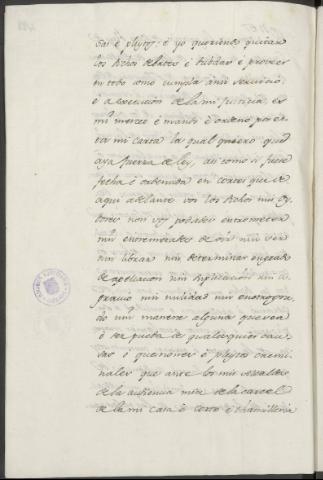 das é pleytos: é yo queriendo quitar
los dichos debates é dubdas é proveer
en todo como cumpla á mi servicio
é á execucion de la mi Justicia es
mi merced é mando é ordeno por es-
ta mi carta la qual quiero que
aya fuerza de ley, asi como si fuese
fecha é ordenada en cortes que de
aqui adelante vos los dichos mis Oy-
dores non vos podades entremeter
nin entremetades de oir nin ver
nin librar nin determinar en grado
de apellacion nin suplicacion nin a-
gravio nin nulidad nin en otro gra-
do nin manera alguna que sea
ó ser pueda de qualesquier cau-
sas ó questiones ó pleytos crimi-
nales que ante los mis Alcaldes
de la audiencia mia de la carcel
de la mi casa é corte é chancilleria